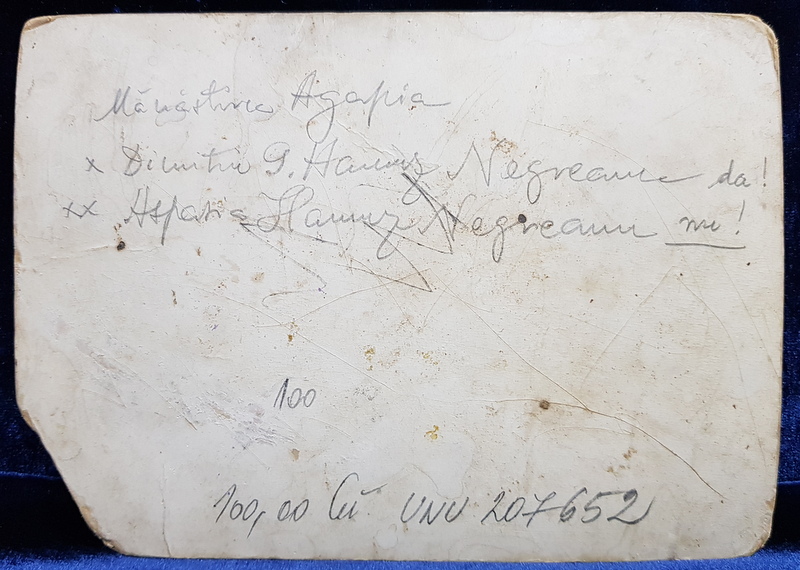 Mănăstirea Agapia
x Dimitriu G. Hamuz Negreanu da!
xx Aspasia Hamuz Negreanu nu!
100
100,00 lei UNU 207652